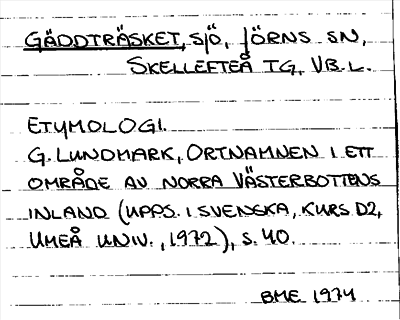 GÄDDTRÄSKET, SJÖ, JÖRNS SN,
SKELLEFTEÅ TG, VB. L.
ETYMOLOGI.
G. LUNDMARK, ORTNAMNEN I ETT
OMRÅDE AV NORRA VÄSTERBOTTENS
INLAND (UPPS. I SVENSKA, KURS D2,
UMEÅ UNIV., 1972), S. 40.
BME 1974